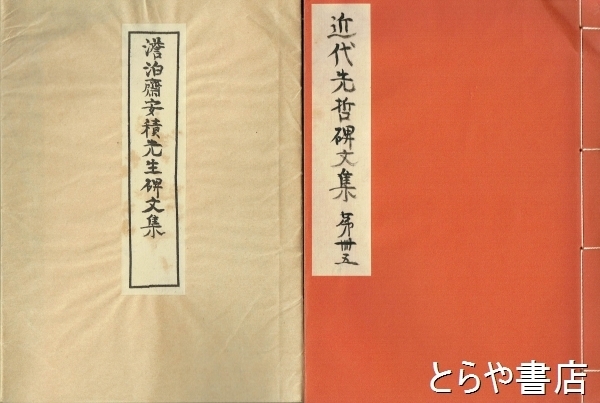 澹泊齋安積先生碑文集
近代先哲碑文集 第卌五
とらや書店